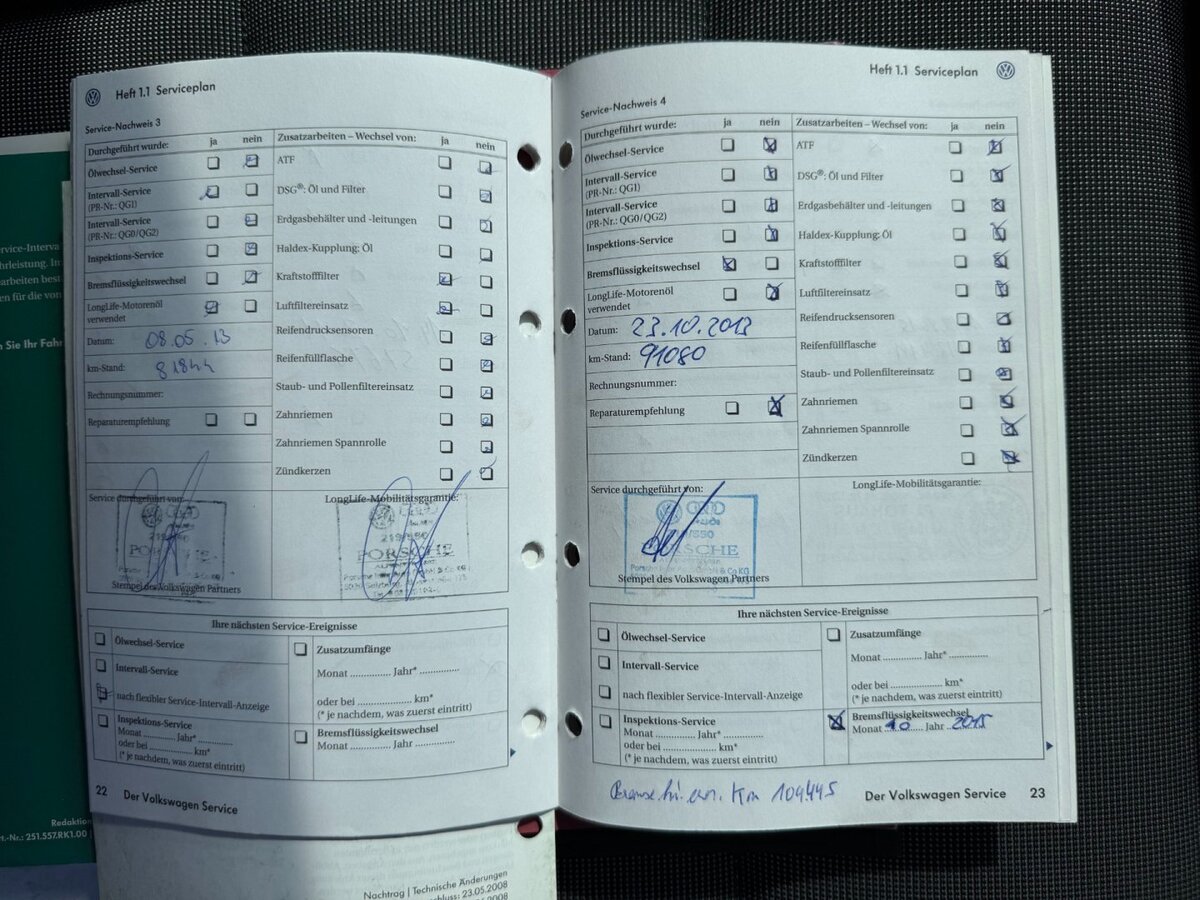 Heft 1.1 Serviceplan
Service-Nachweis 3
Durchgeführt wurde: ja nein
Ölwechsel-Service
Intervall-Service
(PR-Nr.: QG1)
Intervall-Service
(PR-Nr.: QG0/QG2)
Inspektions-Service
Bremsflüssigkeitswechsel
LongLife-Motorenöl
verwendet
Datum: 08.05.13
km-Stand: 81844
Rechnungsnummer:
Reparaturempfehlung
Zusatzarbeiten – Wechsel von: ja nein
ATF
DSG®: Öl und Filter
Erdgasbehälter und -leitungen
Haldex-Kupplung: Öl
Kraftstofffilter
Luftfiltereinsatz
Reifendrucksensoren
Reifenfüllflasche
Staub- und Pollenfiltereinsatz
Zahnriemen
Zahnriemen Spannrolle
Zündkerzen
Service durchgeführt von:
PORSCHE
Stempel des Volkswagen Partners
LongLife-Mobilitätsgarantie:
PORSCHE
Ihre nächsten Service-Ereignisse
Ölwechsel-Service
Intervall-Service
nach flexibler Service-Intervall-Anzeige
Inspektions-Service
Monat ............ Jahr* ............
oder bei .................... km*
(* je nachdem, was zuerst eintritt)
Zusatzumfänge
Monat ............ Jahr* ............
oder bei .................... km*
(* je nachdem, was zuerst eintritt)
Bremsflüssigkeitswechsel
Monat ............ Jahr ............
22 Der Volkswagen Service
Heft 1.1 Serviceplan
Service-Nachweis 4
Durchgeführt wurde: ja nein
Ölwechsel-Service
Intervall-Service
(PR-Nr.: QG1)
Intervall-Service
(PR-Nr.: QG0/QG2)
Inspektions-Service
Bremsflüssigkeitswechsel
LongLife-Motorenöl
verwendet
Datum: 23.10.2013
km-Stand: 91080
Rechnungsnummer:
Reparaturempfehlung
Zusatzarbeiten – Wechsel von: ja nein
ATF
DSG®: Öl und Filter
Erdgasbehälter und -leitungen
Haldex-Kupplung: Öl
Kraftstofffilter
Luftfiltereinsatz
Reifendrucksensoren
Reifenfüllflasche
Staub- und Pollenfiltereinsatz
Zahnriemen
Zahnriemen Spannrolle
Zündkerzen
Service durchgeführt von:
PORSCHE
Stempel des Volkswagen Partners
LongLife-Mobilitätsgarantie:
Ihre nächsten Service-Ereignisse
Ölwechsel-Service
Intervall-Service
nach flexibler Service-Intervall-Anzeige
Inspektions-Service
Monat ............ Jahr* ............
oder bei .................... km*
(* je nachdem, was zuerst eintritt)
Zusatzumfänge
Monat ............ Jahr* ............
oder bei .................... km*
(* je nachdem, was zuerst eintritt)
Bremsflüssigkeitswechsel
Monat 10 Jahr 2015
Bremse hi. ern. Km 104445
Der Volkswagen Service 23
Nachtrag | Technische Änderungen
23.05.2008
Redaktion
251.557.RK1.00